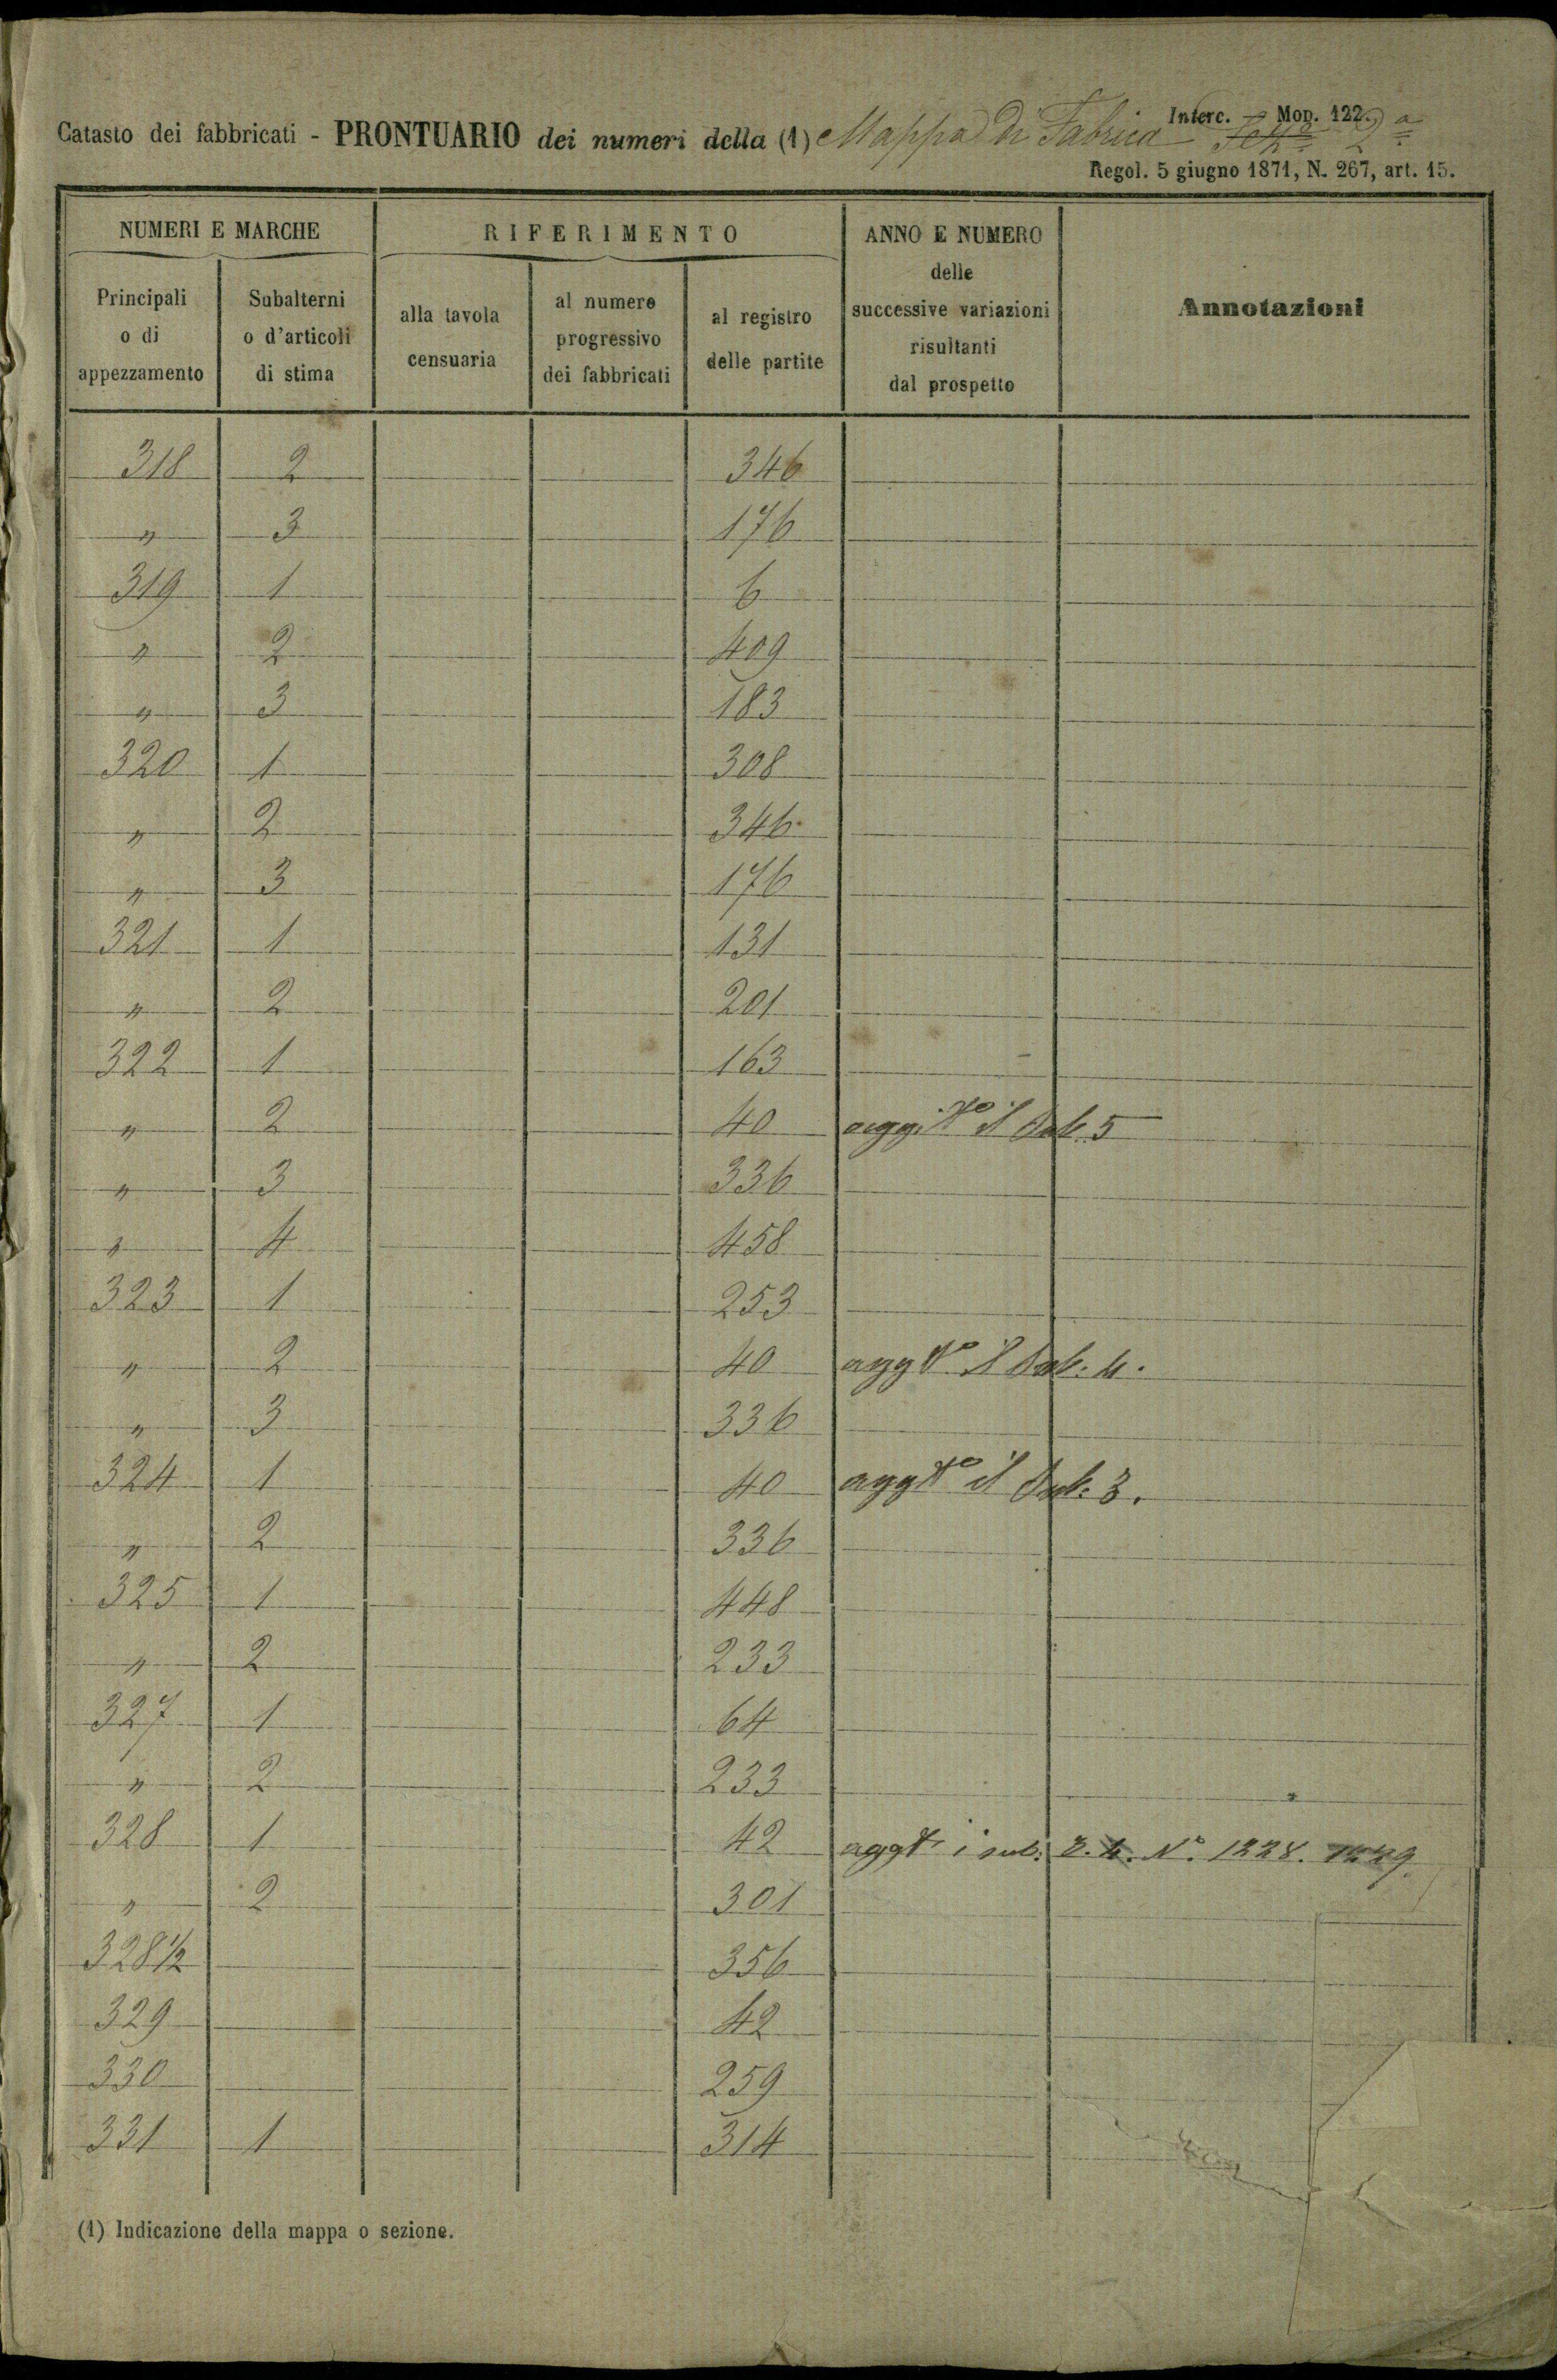 Interc. - Mod. 122.
Catasto dei fabbricati - PRONTUARIO dei numeri della (1) Mappa di Fabrica Sez.e 2a
Regol. 5 giugno 1871, N. 267, art. 15.
NUMERI E MARCHE RIFERIMENTO ANNO E NUMERO delle successive variazioni risultanti dal prospetto Annotazioni
Principali o di appezzamento Subalterni o d'articoli di stima alla tavola censuaria al numero progressivo dei fabbricati al registro delle partite
318 2 346
" 3 176
319 1 6
" 2 409
" 3 183
320 1 308
" 2 346
" 3 176
321 1 131
" 2 201
322 1 163
" 2 40 aggi.to il Sub. 5
" 3 336
" 4 458
323 1 253
" 2 40 agg.to il Sub: 4.
" 3 336
324 1 40 agg.to il Sub: 3.
" 2 336
325 1 448
" 2 233
327 1 64
" 2 233
328 1 42 agg.ti i sub: 3. 4. N.o 1228. 1229.
" 2 301
328 1/2 356
329 42
330 259
331 1 314
(1) Indicazione della mappa o sezione.